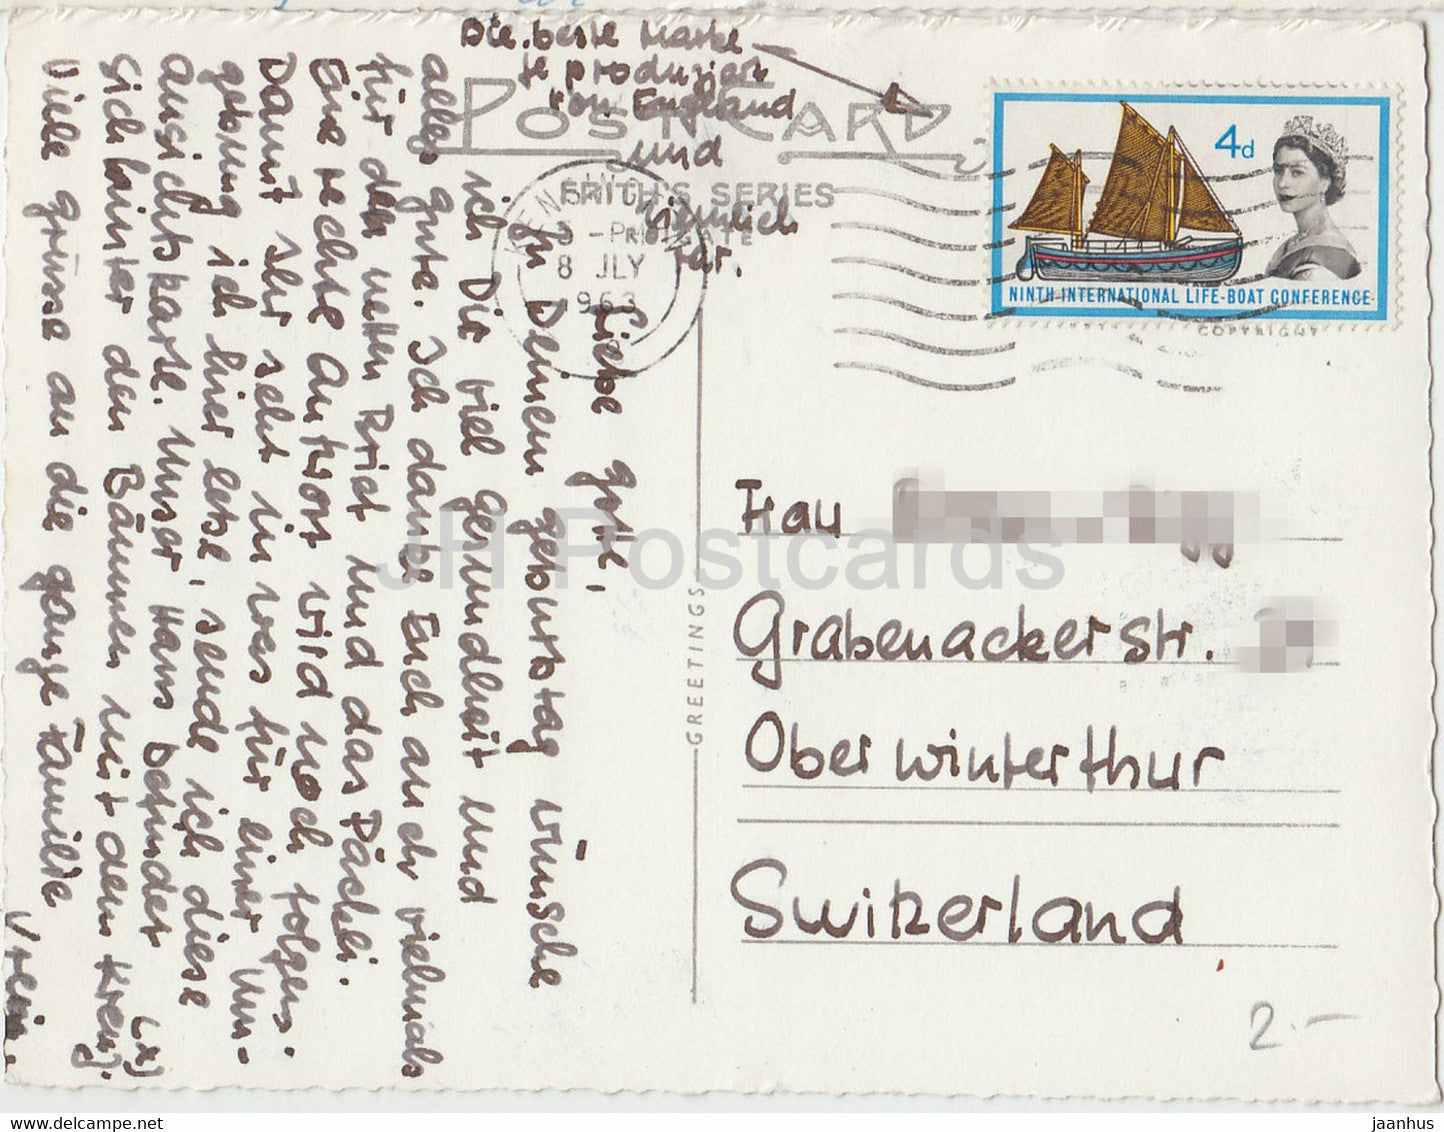 Die beste Marke
je produziert
von England
und
ziemlich
rar.
POST CARD
FRITH'S SERIES
REIGATE
KENSINGTON
3 - PM
8 JLY
1963
4d
NINTH INTERNATIONAL LIFE-BOAT CONFERENCE
COPYRIGHT
Liebe Gotte,
zu Deinem Geburtstag wünsche
ich Dir viel Gesundheit und
alles Gute. Ich danke Euch auch vielmals
für den netten Brief und das Päckli.
Eine rechte Antwort wird noch folgen.
Damit Ihr seht in was für einer Um-
gebung ich hier lebe, sende ich diese
Ansichtskarte. Unser Haus befindet
sich hinter den Bäumen mit dem Kreuz.
(x)
Viele Grüsse an die ganze Familie
Vreni.
GREETINGS
Frau
Grabenackerstr.
Oberwinterthur
Switzerland
2.-
JH Postcards
www.delcampe.net
jaanhus